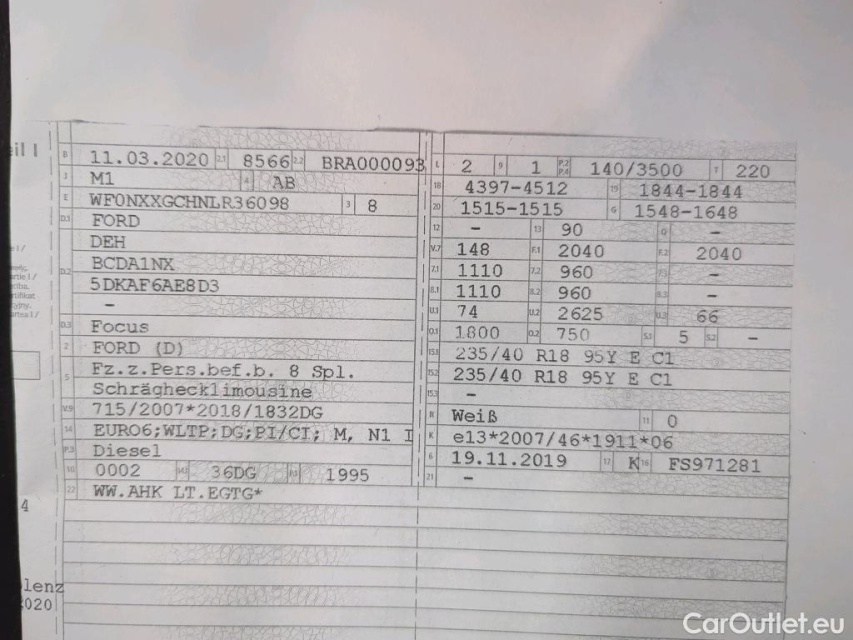 eil I
B 11.03.2020 2.1 8566 2.2 BRA000093
J M1 4 AB
E WF0NXXGCHNLR36098 3 8
D.1 FORD
DEH
D.2 BCDA1NX
5DKAF6AE8D3
–
D.3 Focus
2 FORD (D)
5 Fz.z.Pers.bef.b. 8 Spl.
Schräghecklimousine
V.9 715/2007*2018/1832DG
14 EURO6;WLTP;DG;PI/CI; M, N1 I
P.3 Diesel
10 0002 14.1 36DG P.1 1995
22 WW.AHK LT.EGTG*
L 2 9 1 P.2 P.4 140/3500 T 220
18 4397-4512 19 1844-1844
20 1515-1515 G 1548-1648
12 – 13 90 Q –
V.7 148 F.1 2040 F.2 2040
7.1 1110 7.2 960 7.3 –
8.1 1110 8.2 960 8.3 –
U.1 74 U.2 2625 U.3 66
O.1 1800 O.2 750 S.1 5 S.2 –
15.1 235/40 R18 95Y E C1
15.2 235/40 R18 95Y E C1
15.3 –
R Weiß 11 0
K e13*2007/46*1911*06
6 19.11.2019 17 K 16 FS971281
21 –
4
lenz
2020
CarOutlet.eu